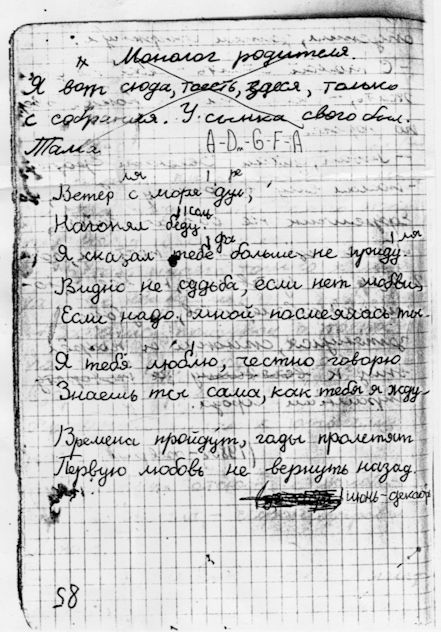 Монолог родителя.
Я вот сюда, тоесть, здеся, только
с собрания. У сынка свого был.
Тама
A-Dm-G-F-A
ля ре
Ветер с моря дул,
соль
Нагонял беду.
фа ля
Я сказал тебе больше не приду.
Видно не судьба, если нет любви,
Если надо мной посмеялась ты.
Я тебя люблю, честно говорю
Знаешь ты сама, как тебя я жду.
Времена пройдут, годы пролетят
Первую любовь не вернуть назад.
июнь-декабрь
58